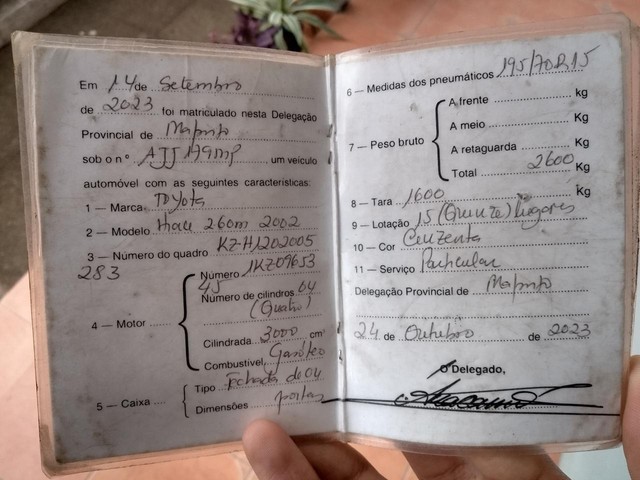 Em 14 de Setembro
de 2023 foi matriculado nesta Delegação
Provincial de Maputo
sob o nº AJJ 179 MP, um veículo
automóvel com as seguintes características:
1 — Marca Toyota
2 — Modelo Hiace 260m 2002
3 — Número do quadro KZ-H1202005
283
4 — Motor
Número 1KZ09653
45
Número de cilindros 04
(Quatro)
Cilindrada 3000 cm³
Combustível, Gasóleo
5 — Caixa
Tipo Fechada de 04
Dimensões portas
6 — Medidas dos pneumáticos 195/70R15
7 — Peso bruto
A frente kg
A meio Kg
A retaguarda Kg
Total 2600 Kg
8 — Tara 1600 Kg
9 — Lotação 15 (Quinze) lugares
10 — Cor Cinzenta
11 — Serviço Particular
Delegação Provincial de Maputo
24 de Outubro de 2023
O Delegado,